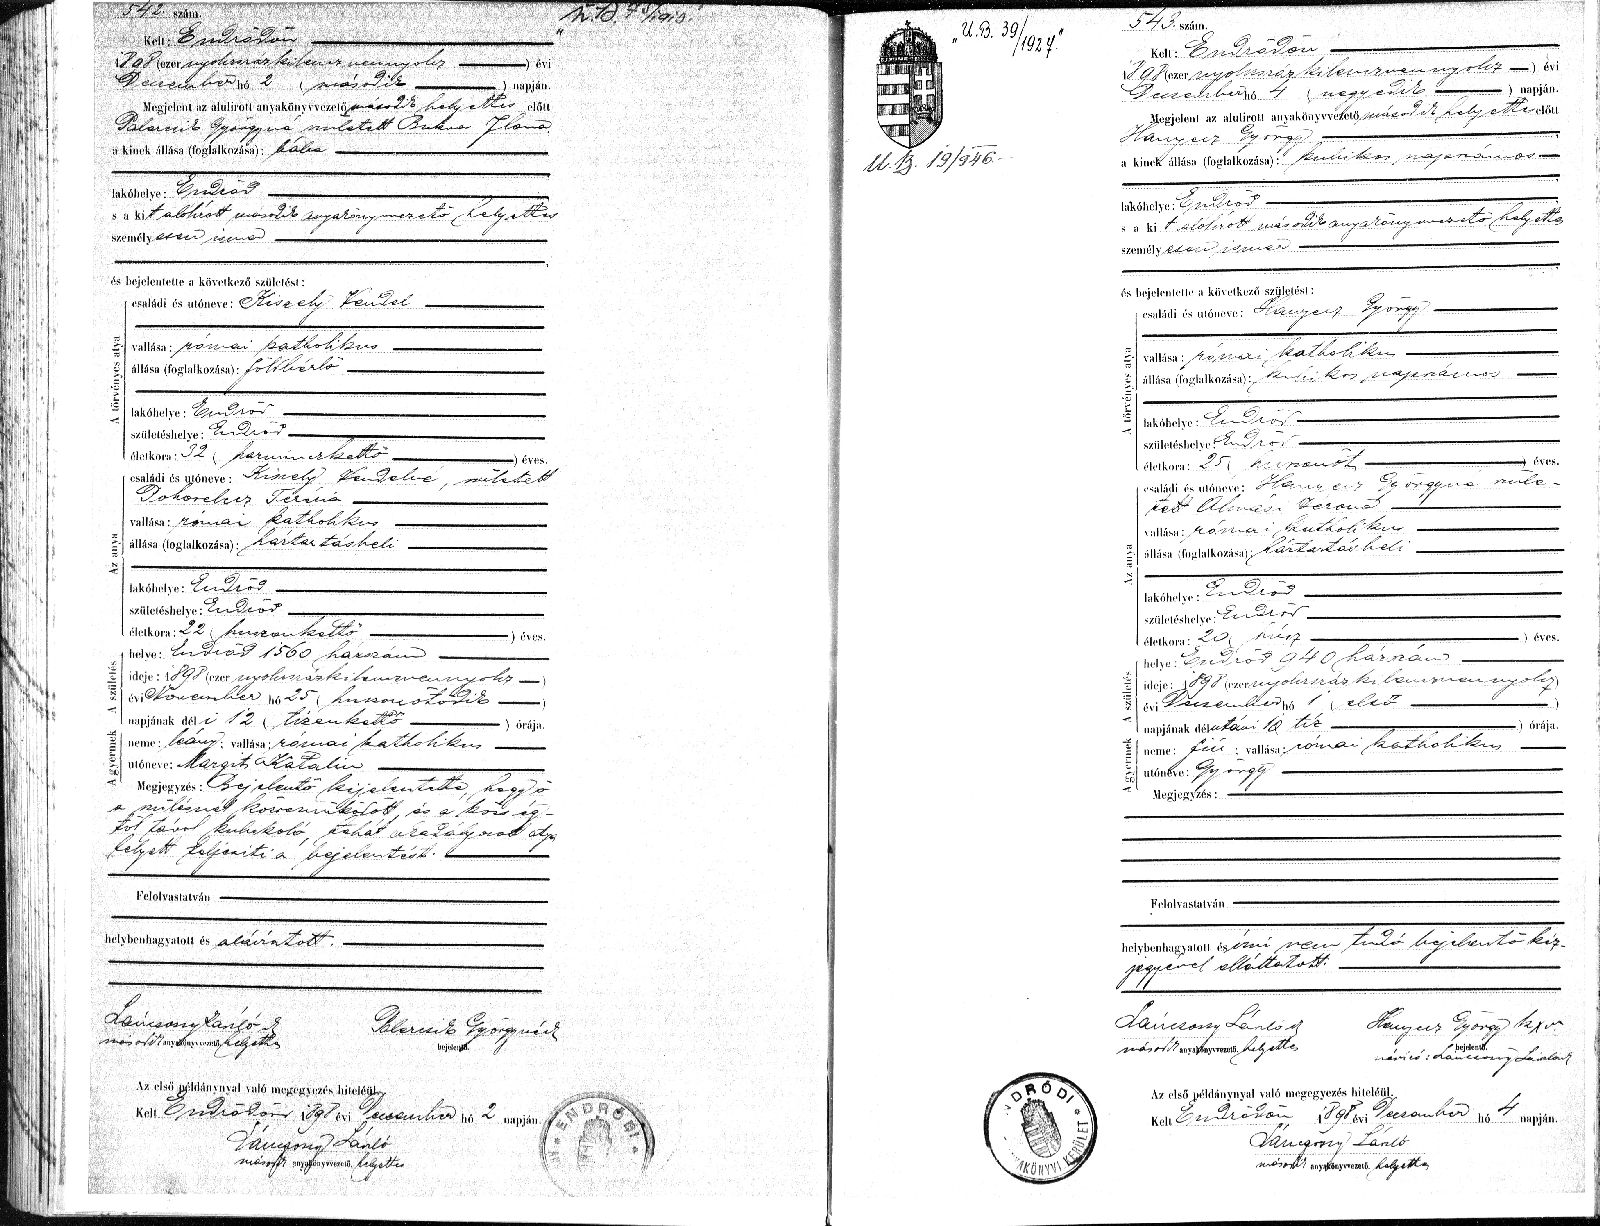 542. szám.
Kelt: Endrődön
1898 (ezer nyolczszázkilenczvennyolcz) évi
December hó 2 (második) napján.
Megjelent az alulirott anyakönyvvezető második helyettes előtt
Palercsik Györgyné született Ilona
a kinek állása (foglalkozása): bába
lakóhelye: Endrőd
s a kit alólirott második anyakönyvvezető helyettes
személyesen ismer
és bejelentette a következő születést:
A törvényes atya
családi és utóneve: Kiszely Vendel
vallása: római katholikus
állása (foglalkozása): földbérlő
lakóhelye: Endrőd
születéshelye: Endrőd
életkora: 32 (harminczkettő) éves.
Az anya
családi és utóneve: Kiszely Vendelné, született
Terézia
vallása: római katholikus
állása (foglalkozása): háztartásbeli
lakóhelye: Endrőd
születéshelye: Endrőd
életkora: 22 (huszonkettő) éves.
A születés
helye: Endrőd 1560 házszám
ideje: 1898 (ezer nyolczszázkilenczvennyolcz)
évi November hó 25 (huszonötödik)
napjának dél i 12 (tizenkettő) órája.
A gyermek
neme: leány; vallása: római katholikus
utóneve: Margit Katalin
Megjegyzés: Bejelentő kijelentette, hogy ő
a szülésnél közreműködött, és a köz ég-
től távol kubikoló, tehát atya
helyett teljesiti a bejelentést.
Felolvastatván
helybenhagyatott és aláiratott.
Láncsony László
második anyakönyvvezető, helyettes
Palercsik Györgyné
bejelentő.
Az első példánynyal való megegyezés hiteléül.
Kelt Endrődön 1898 évi December hó 2 napján.
Láncsony László
második anyakönyvvezető, helyettes
ENDRŐDI
"U.B. 39/1927."
U. B. 19/946.
543. szám.
Kelt: Endrődön
1898 (ezer nyolczszázkilenczvennyolcz) évi
December hó 4 (negyedik) napján.
Megjelent az alulirott anyakönyvvezető, második helyettes előtt
Hanyecz György
a kinek állása (foglalkozása): kubikos, napszámos
lakóhelye: Endrőd
s a kit alólirott második anyakönyvvezető helyettes
személyesen ismer
és bejelentette a következő születést:
A törvényes atya
családi és utóneve: Hanyecz György
vallása: római katholikus
állása (foglalkozása): kubikos, napszámos
lakóhelye: Endrőd
születéshelye: Endrőd
életkora: 25 (huszonöt) éves.
Az anya
családi és utóneve: Hanyecz Györgyné szüle-
tett Almási Verona
vallása: római katholikus
állása (foglalkozása): háztartásbeli
lakóhelye: Endrőd
születéshelye: Endrőd
életkora: 20 (húsz) éves.
A születés
helye: Endrőd 940 házszám
ideje: 1898 (ezer nyolczszázkilenczvennyolcz)
évi December hó 1 (első)
napjának délutáni 10 tiz órája.
A gyermek
neme: fiú; vallása: római katholikus
utóneve: György
Megjegyzés:
Felolvastatván
helybenhagyatott és irni nem tudó bejelentő kéz-
jegyével elláttatott.
Láncsony László
második anyakönyvvezető, helyettes
Hanyecz György
bejelentő.
névíró: Láncsony László
Az első példánynyal való megegyezés hiteléül.
Kelt Endrődön 1898 évi December hó 4 napján.
Láncsony László
második anyakönyvvezető, helyettes
NDRŐDI
AKÖNYVI KERÜLET